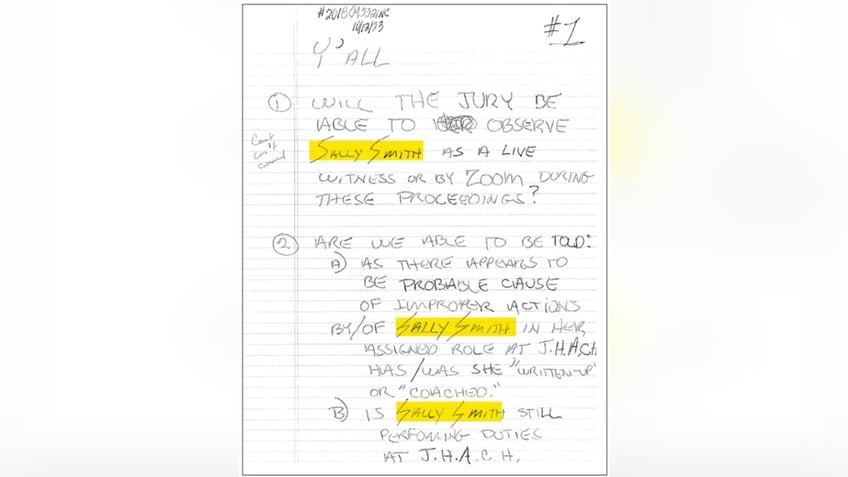 10/13/23
#1
Y'ALL
① WILL THE JURY BE
ABLE TO OBSERVE
SALLY SMITH AS A LIVE
WITNESS OR BY ZOOM DURING
THESE PROCEEDINGS?
② ARE WE ABLE TO BE TOLD:
A) AS THERE APPEARS TO
BE PROBABLE CAUSE
OF IMPROPER ACTIONS
BY/OF SALLY SMITH IN HER
ASSIGNED ROLE AT J.H.A.C.H
HAS/WAS SHE "WRITTEN-UP"
OR "COACHED."
B) IS SALLY SMITH STILL
PERFOMING DUTIES
AT J.H.A.C.H.